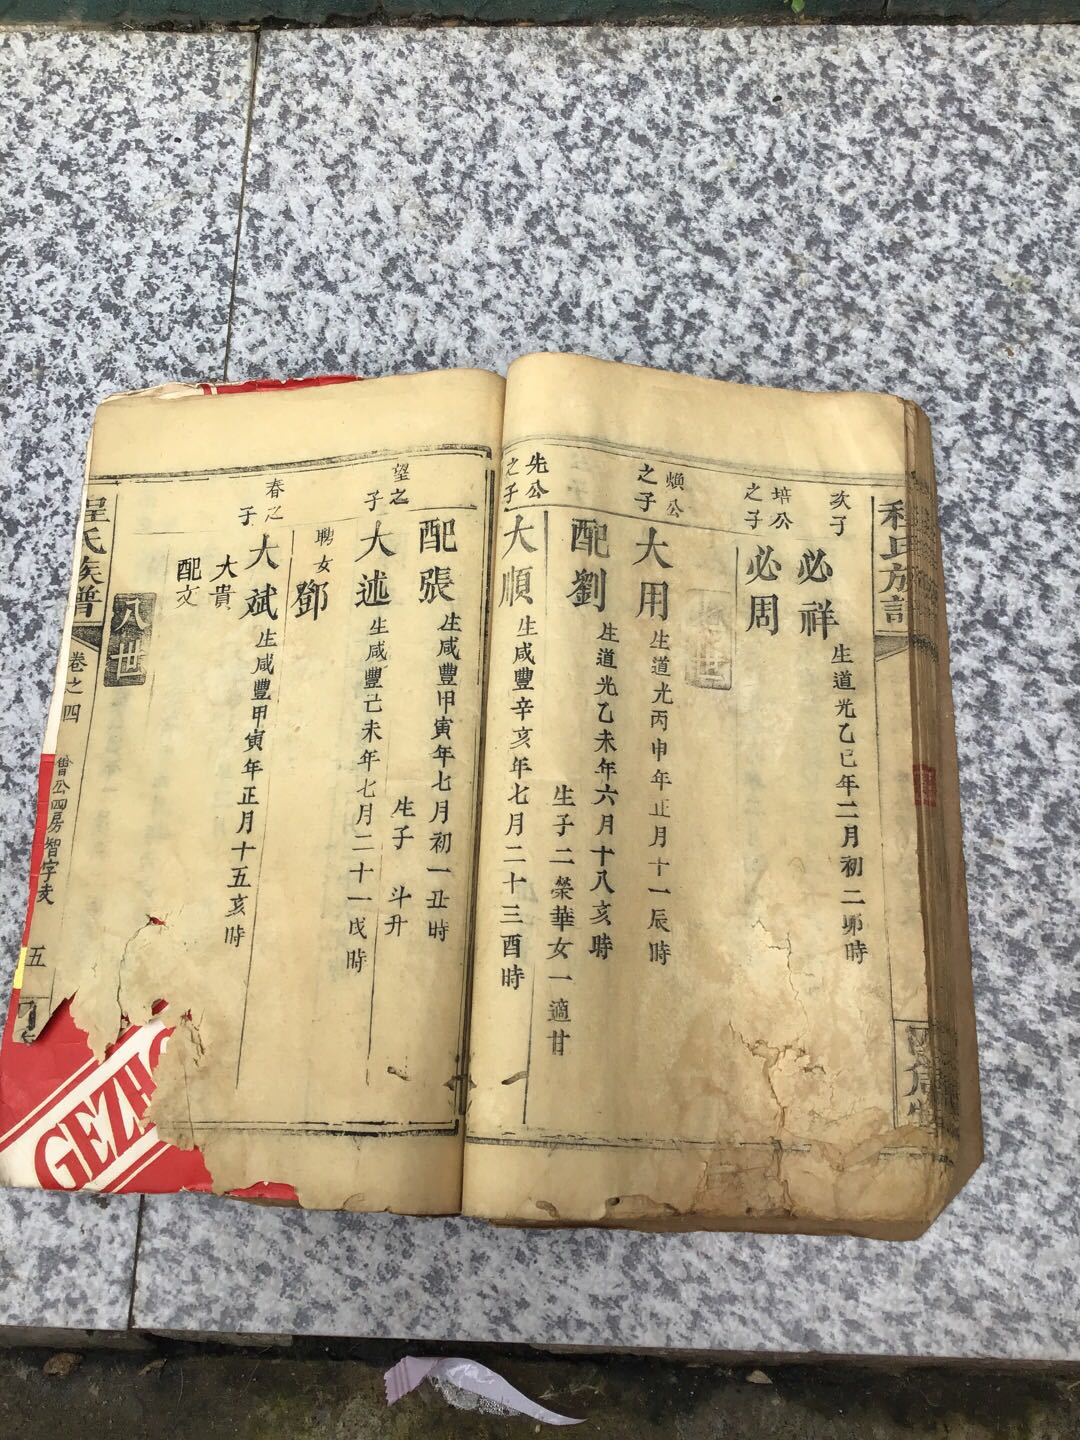 程氏族譜
次子
必祥
生道光乙巳年二月初二卯時
培公之子
必周
世
熉公之子
大用
生道光丙申年正月十一辰時
配劉
生道光乙未年六月十八亥時
生子二榮華女一適甘
先公之子
大順
生咸豐辛亥年七月二十三酉時
配張
生咸豐甲寅年七月初一丑時
生子 斗升
望之子
大述
生咸豐己未年七月二十一戌時
聘女鄧
春之子
大斌
生咸豐甲寅年正月十五亥時
大貴
配文
八世
程氏族譜
卷之四
曾公四房智字支
五
GEZH